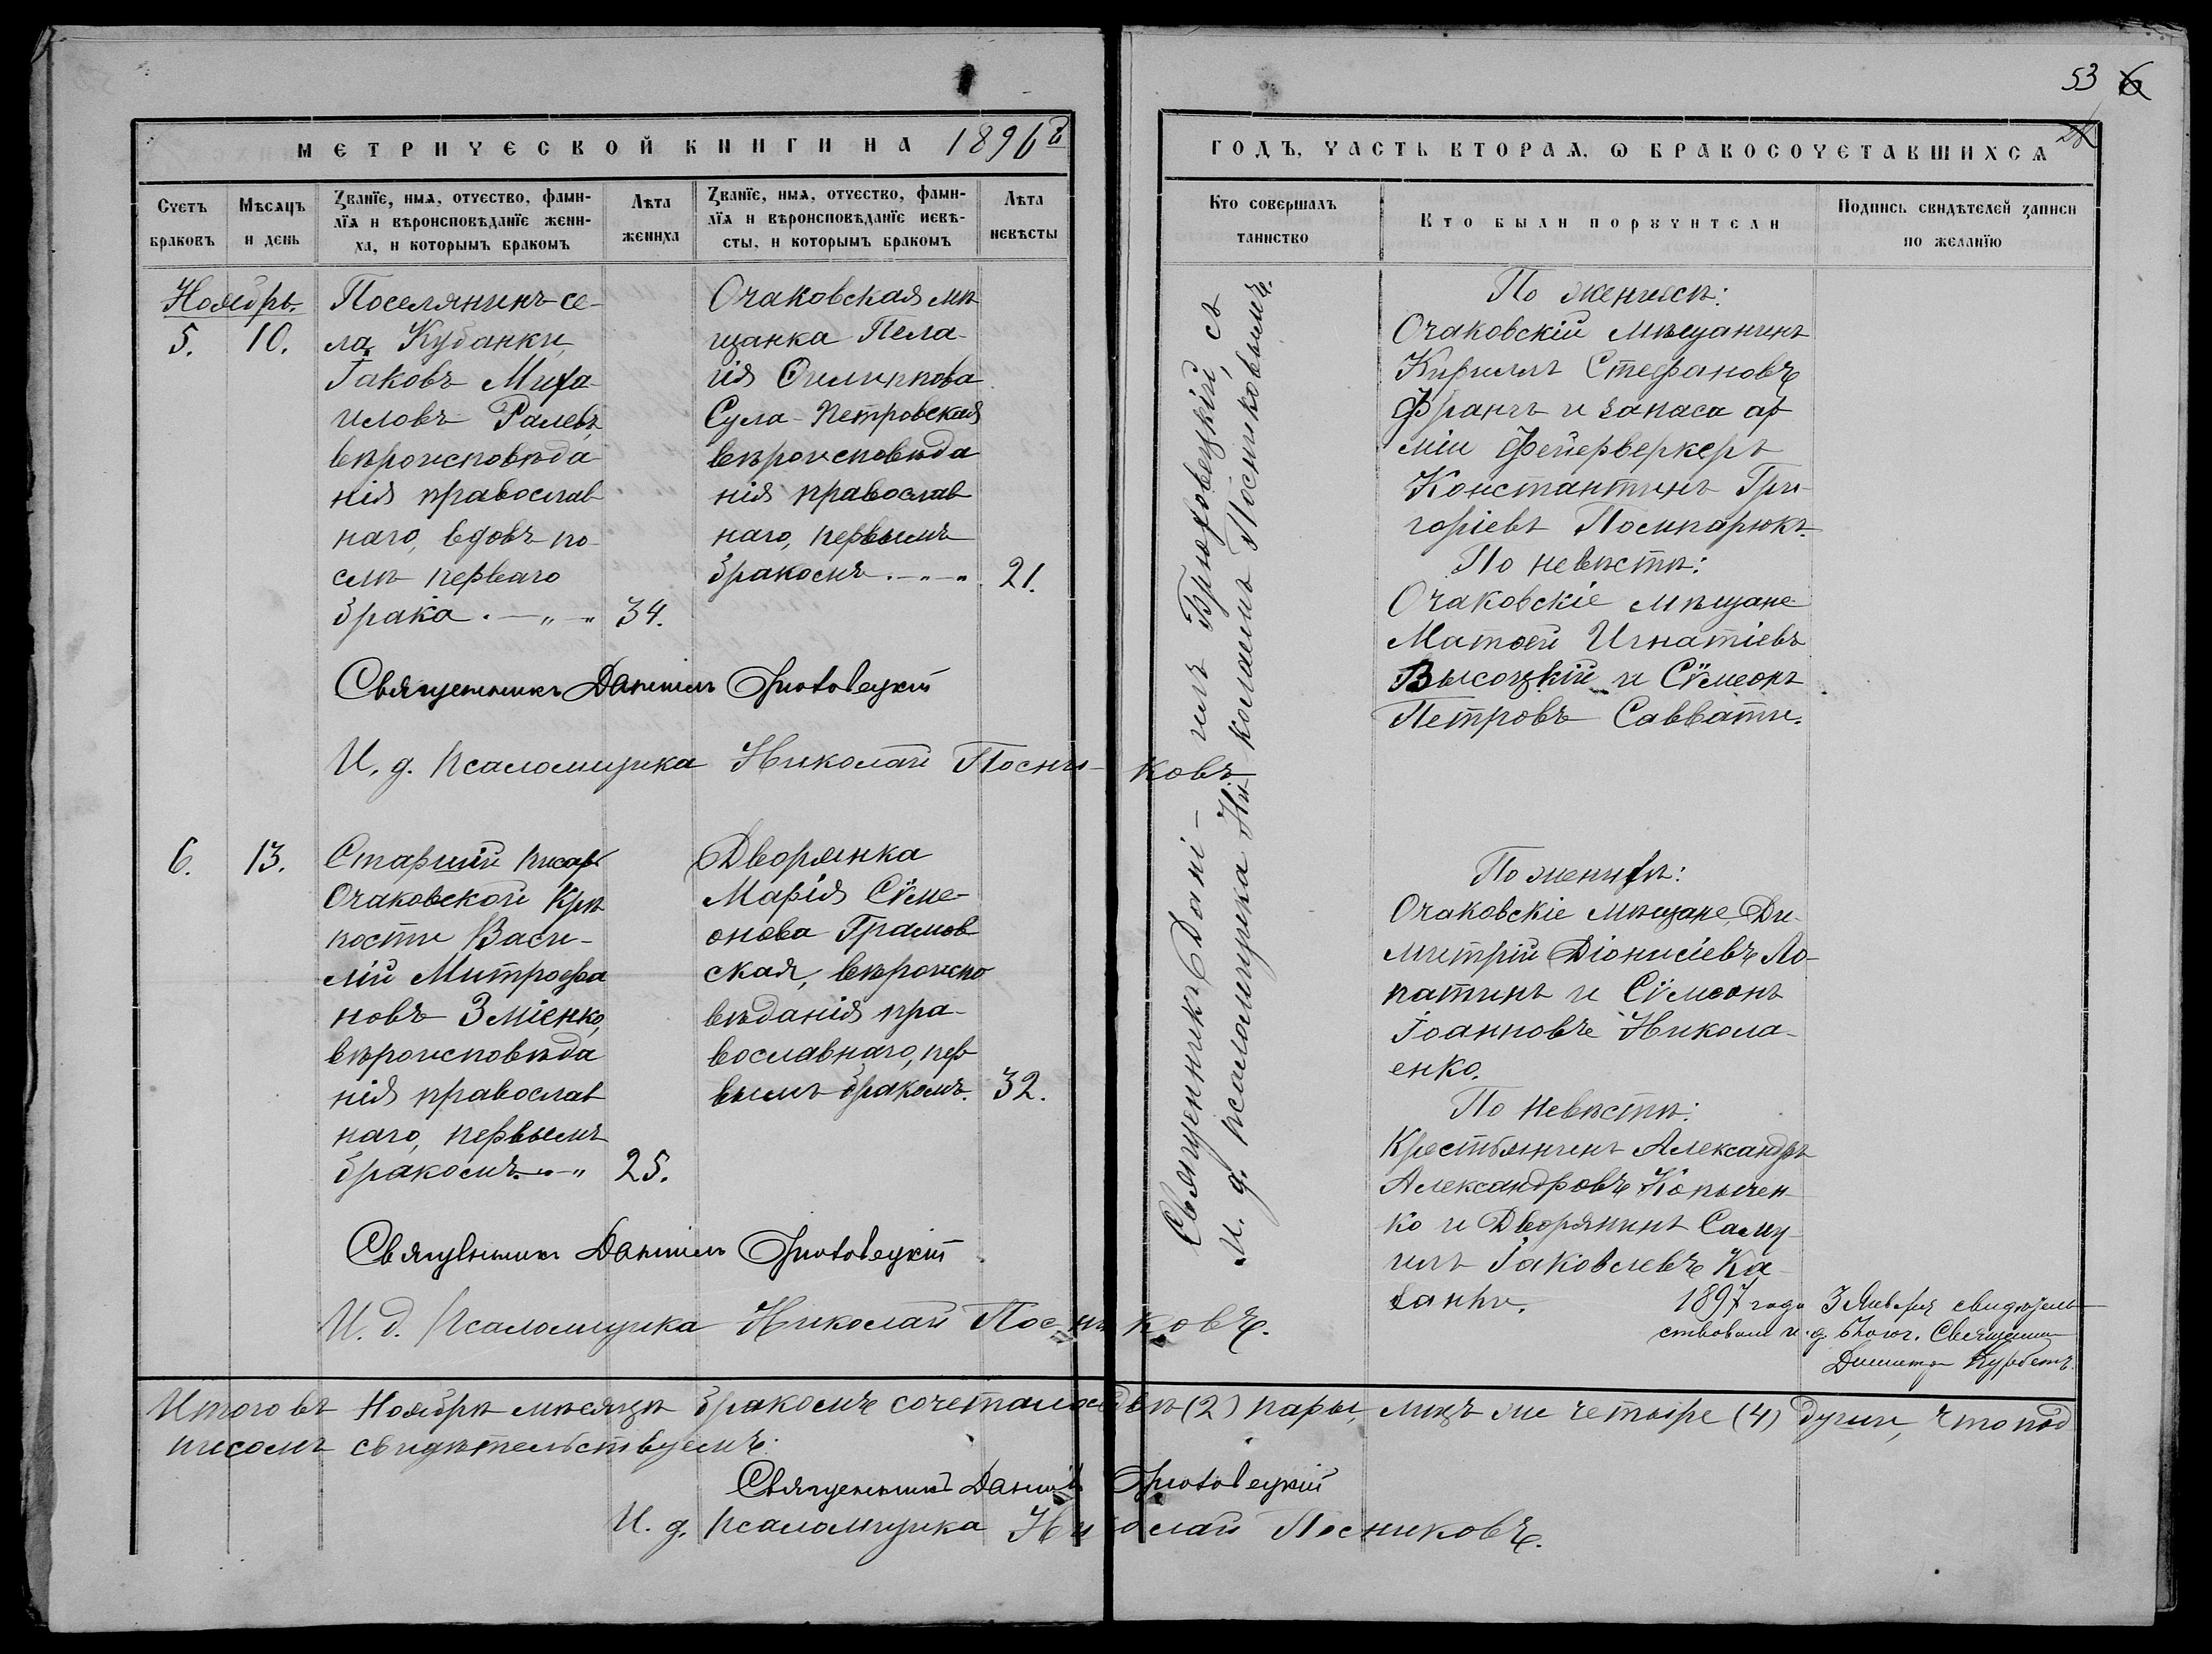 53 6
26
МЕТРИЧЕСКОЙ КНИГИ НА 1896й
ГОДЪ, ЧАСТЬ ВТОРАЯ, Ѡ БРАКОСОЧЕТАВШИХСЯ
Счетъ
браковъ
Мѣсяцъ
и день
Званїе, имя, отчество, фами-
лїя и вѣроисповѣданїе жени-
ха, и которымъ бракомъ
Лѣта
жениха
Званїе, имя, отчество, фами-
лїя и вѣроисповѣданїе невѣ-
сты, и которымъ бракомъ
Лѣта
невѣсты
Кто совершалъ
таинство
Кто были порꙋчители
Подпись свидѣтелей записи
по желанїю
Ноябрь.
5. 10.
Поселянинъ се-
ла Кубанки,
Іаковъ Миха
иловъ Ралевъ,
вѣроисповѣда
нія православ
наго, вдовъ по
слѣ перваго
брака . — „ — „ 34.
Очаковская мѣ
щанка Пела-
гія Филиппова
Сула-Петровская
вѣроисповѣда
нія православ
наго, первымъ
бракомъ . — „ — „ 21.
Священникъ Даніилъ Брюховецкій, съ
и. д. псаломщика Николаемъ Посниковымъ.
По женихѣ:
Очаковскій мѣщанинъ
Кириллъ Стефановъ
Франгъ и запаса ар
міи фейерверкеръ
Константинъ Гри-
горіевъ
По невѣстѣ:
Очаковскіе мѣщане
Матѳей Игнатіевъ
Высоцкій и Сѵмеонъ
Петровъ Савват­и.
Священникъ Даніилъ Брюховецкій
И. д. псаломщика Николай Посни-ковъ
6. 13.
Старшій писарь
Очаковской крѣ
пости Васи-
лій Митрофа
новъ Зміенко,
вѣроисповѣда
нія православ
наго, первымъ
бракомъ. — „ — „ 25.
Дворянка
Марія Сѵме-
онова Грамов
ская, вѣроиспо
вѣданія пра-
вославнаго, пер
вымъ бракомъ. 32.
По женихѣ:
Очаковскіе мѣщане, Ди-
митрій Діонисіевъ Ло-
патинъ и Сѵмеонъ
Іоанновъ Никола-
енко.
По невѣстѣ:
Крестьянинъ Александръ
Александровъ Копычен
ко и Дворянинъ Саму-
илъ Іаковлевъ Ка-
Священникъ Даніилъ Брюховецкій
И. д. Псаломщика Николай Посни ковъ.
1897 года 3 Января свидѣтель-
ствовалъ и. д. Благоч. Священникъ
Димитрій Курбетъ.
Итого въ Ноябрѣ мѣсяцѣ бракомъ сочеталось двѣ (2) пары, лицъ же четыре (4) души, что под
писомъ свидѣтельствуемъ:
Священникъ Даніилъ Брюховецкій
И. д. псаломщика Николай Посниковъ.